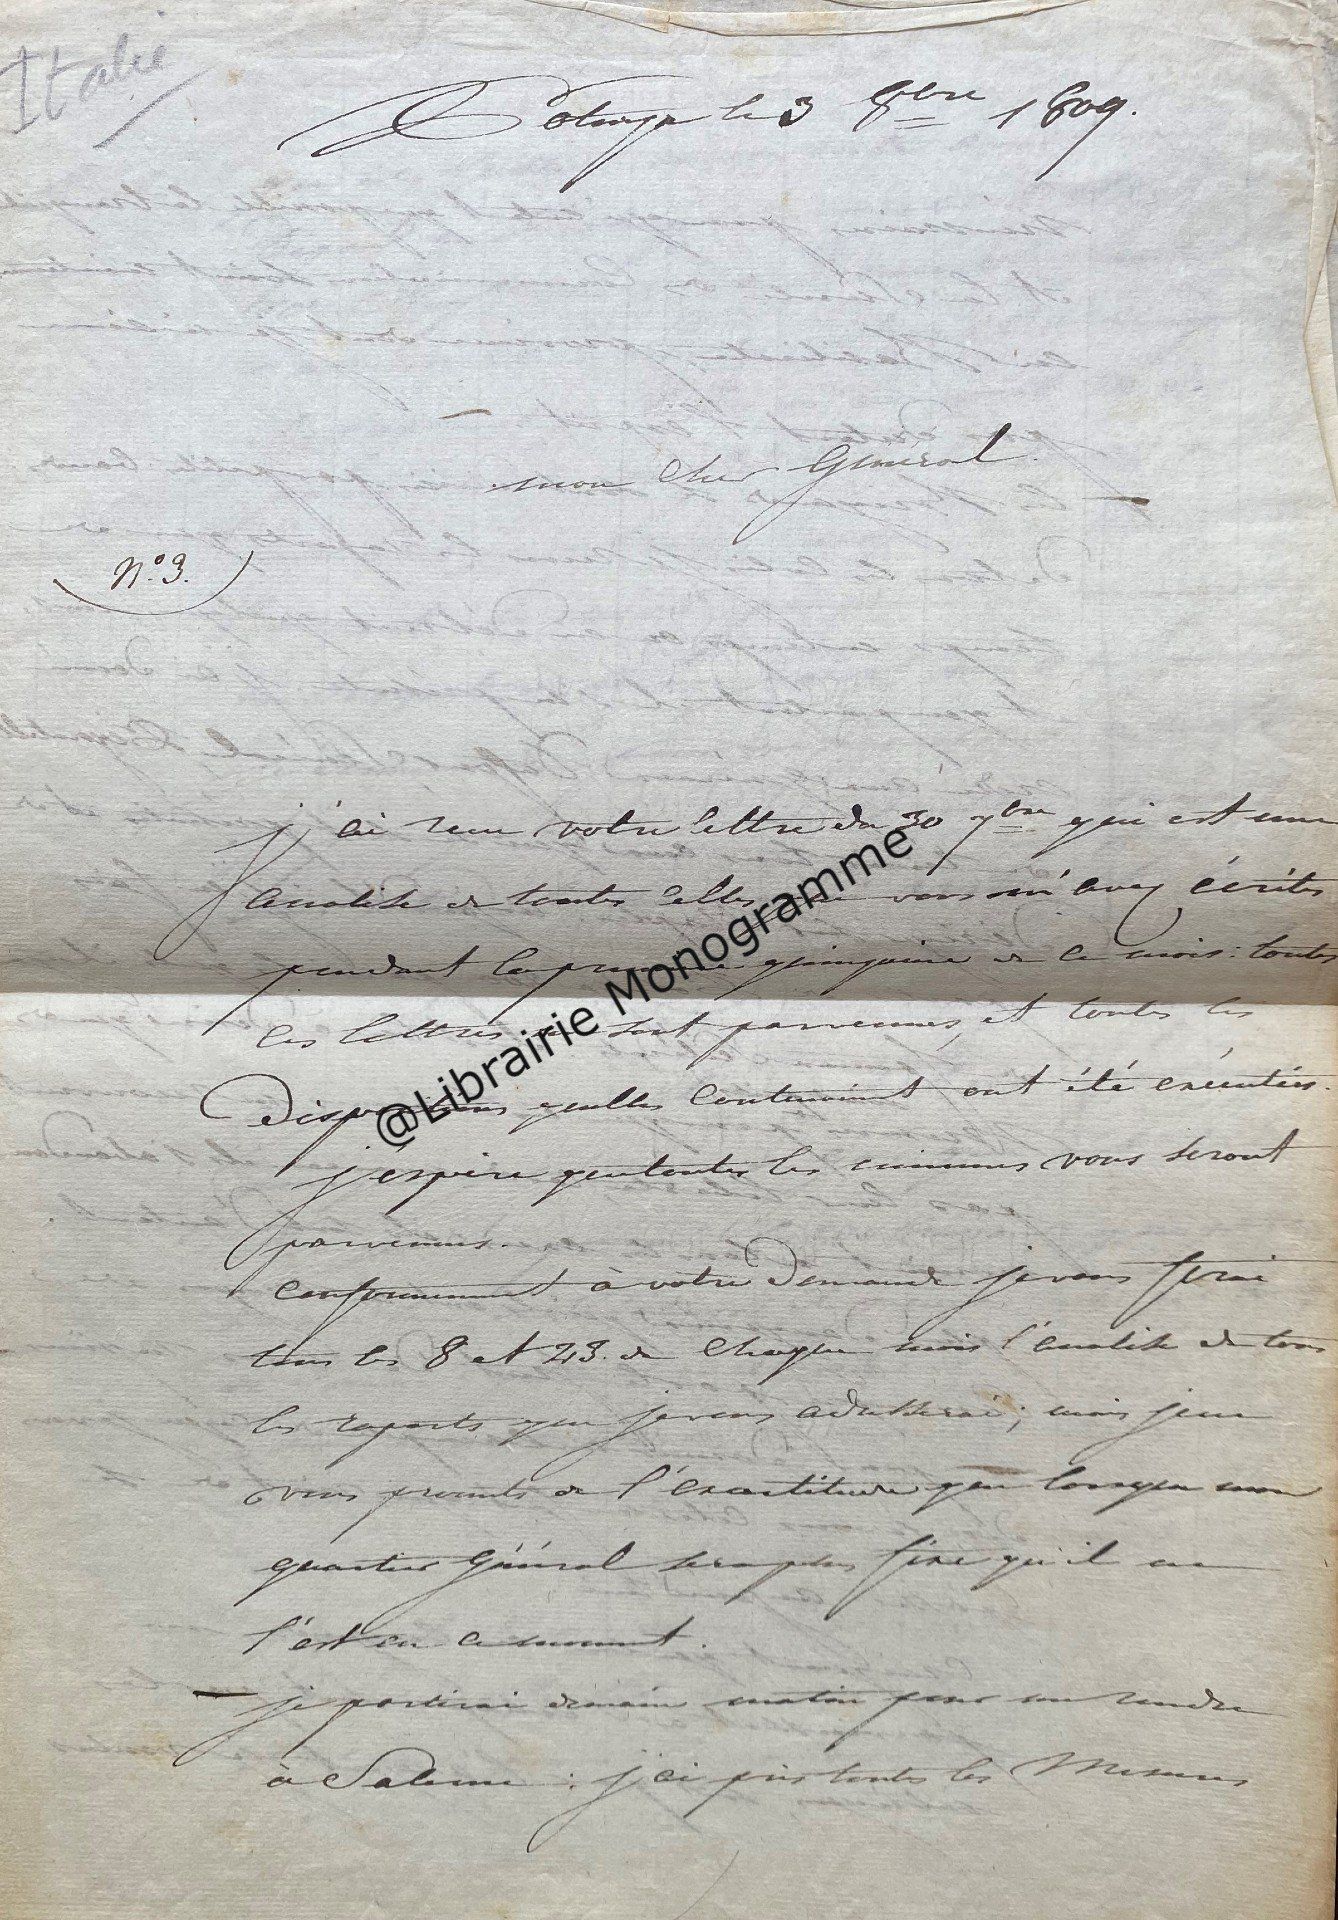 Italie
Potenza le 3 8bre 1809.
mon cher Général.
N.º 3.
j'ai recu votre lettre du 30 7bre qui est une
analise de toutes celles que vous m'avez écrites
pendant la première quinzaine de ce mois: toutes
ces lettres me sont parvenues, et toutes les
dispositions qu'elles contenoient ont été exécutées.
j'espère que toutes les miennes vous seront
parvenues.
conformement à votre demande je vous ferai
tous les 8 et 23. de chaque mois l'analise de tous
les raports que je vous adresserai; mais je ne
vous promets de l'exactitude que lorsque mon
quartier Général sera plus fixe qu'il ne
l'est en ce moment.
je partirai demain matin pour me rendre
à Salerne: j'ai pris toutes les Mesures
@Librairie Monogramme